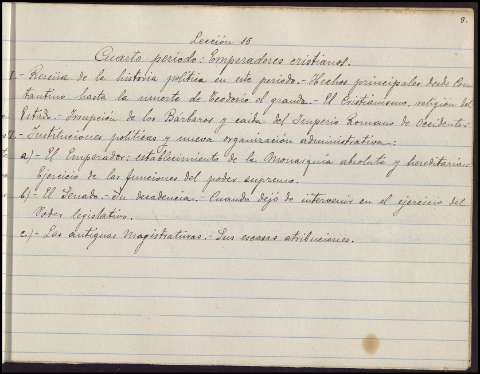 8.
Lección 15
Cuarto período: Emperadores cristianos.
1.- Reseña de la historia política en este período.- Hechos principales desde Cons
tantino hasta la muerte de Teodosio el grande.- El Cristianismo, religión del
Estado.- Irrupción de los Bárbaros y caída del Imperio Romano de Occidente.-
2.- Instituciones políticas y nueva organización administrativa:
a)- El Emperador: establecimiento de la Monarquía absoluta y hereditaria.-
Ejercicio de las funciones del poder supremo.
b)- El Senado.- Su decadencia.- Cuando dejó de intervenir en el ejercicio del
Poder legislativo.
c)- Las antiguas Magistraturas.- Sus escasas atribuciones.